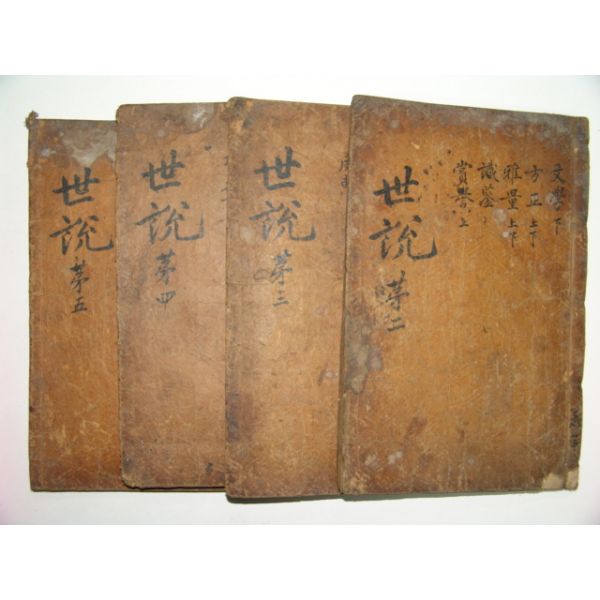 文學下
方正上下
雅量上下
識鉴
賞譽上
世說 苐二
世說 苐三
世說 苐四
世說 苐五